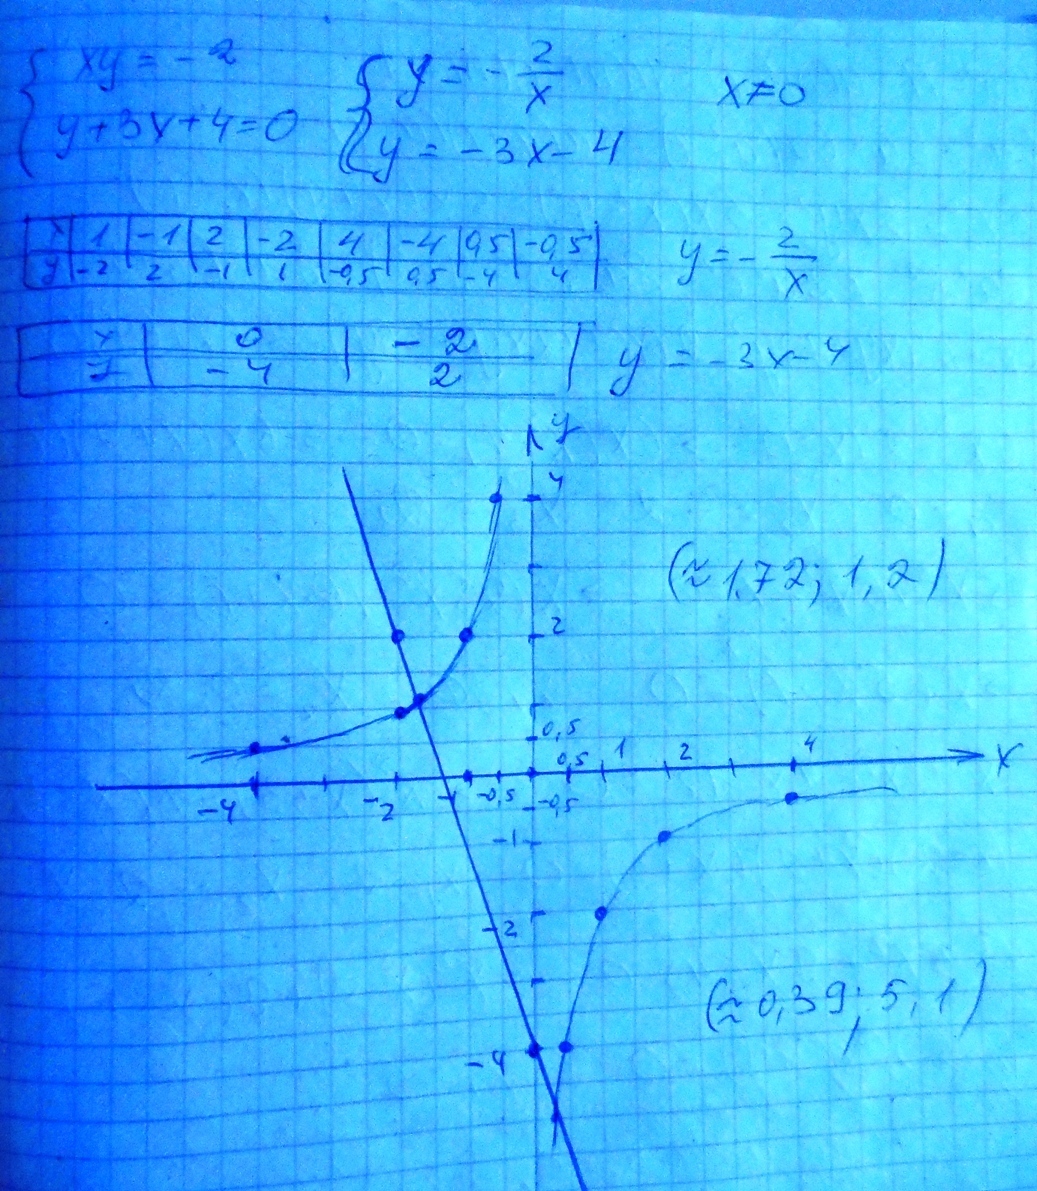 { xy = -2
{ y+3x+4=0
{ y = -2/x
{ y = -3x-4
x≠0
x | 1 | -1 | 2 | -2 | 4 | -4 | 0,5 | -0,5
y | -2 | 2 | -1 | 1 | -0,5 | 0,5 | -4 | 4
y = -2/x
x | 0 | -2
y | -4 | 2
y = -3x-4
y
4
(≈1,72; 1,2)
2
0,5
0,5 1 2 4 x
-4 -2 -0,5 -0,5
-1
-2
(≈0,39; 5,1)
-4